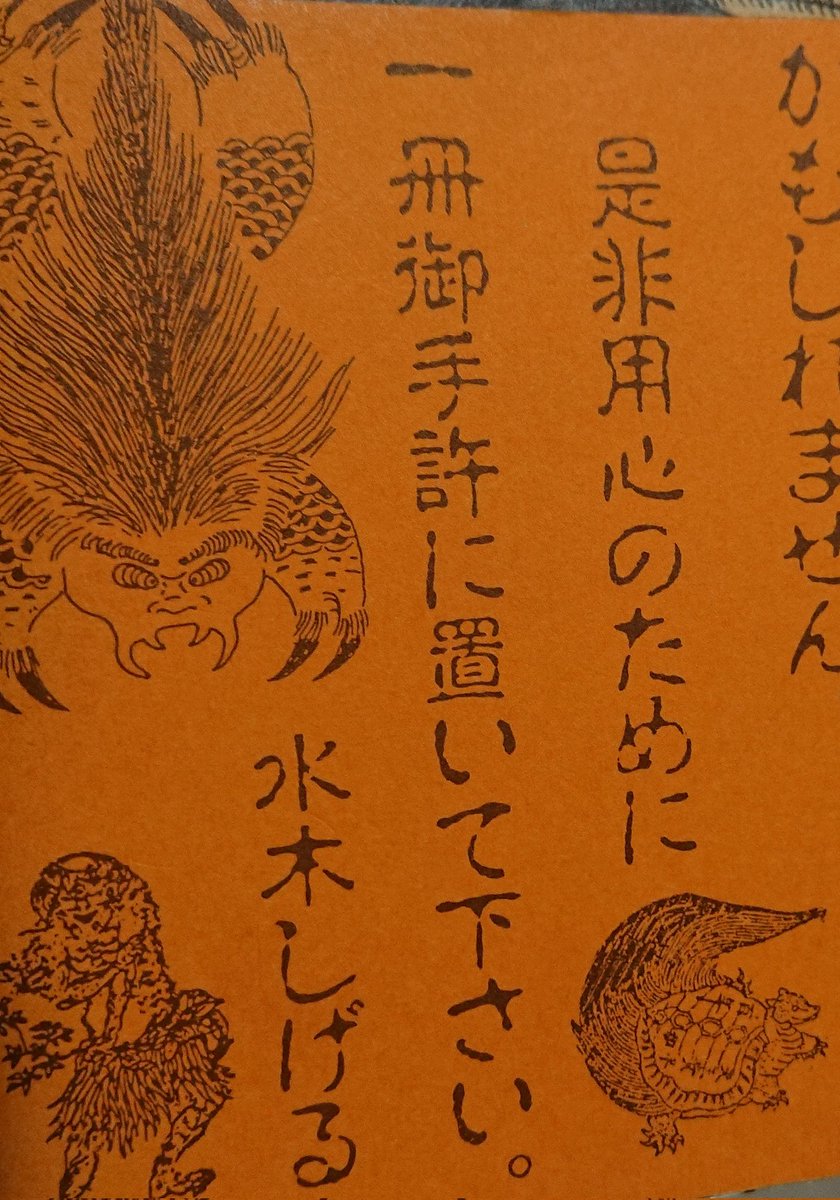 かもしれません
是非用心のために
一冊御手許に置いて下さい。
水木しげる